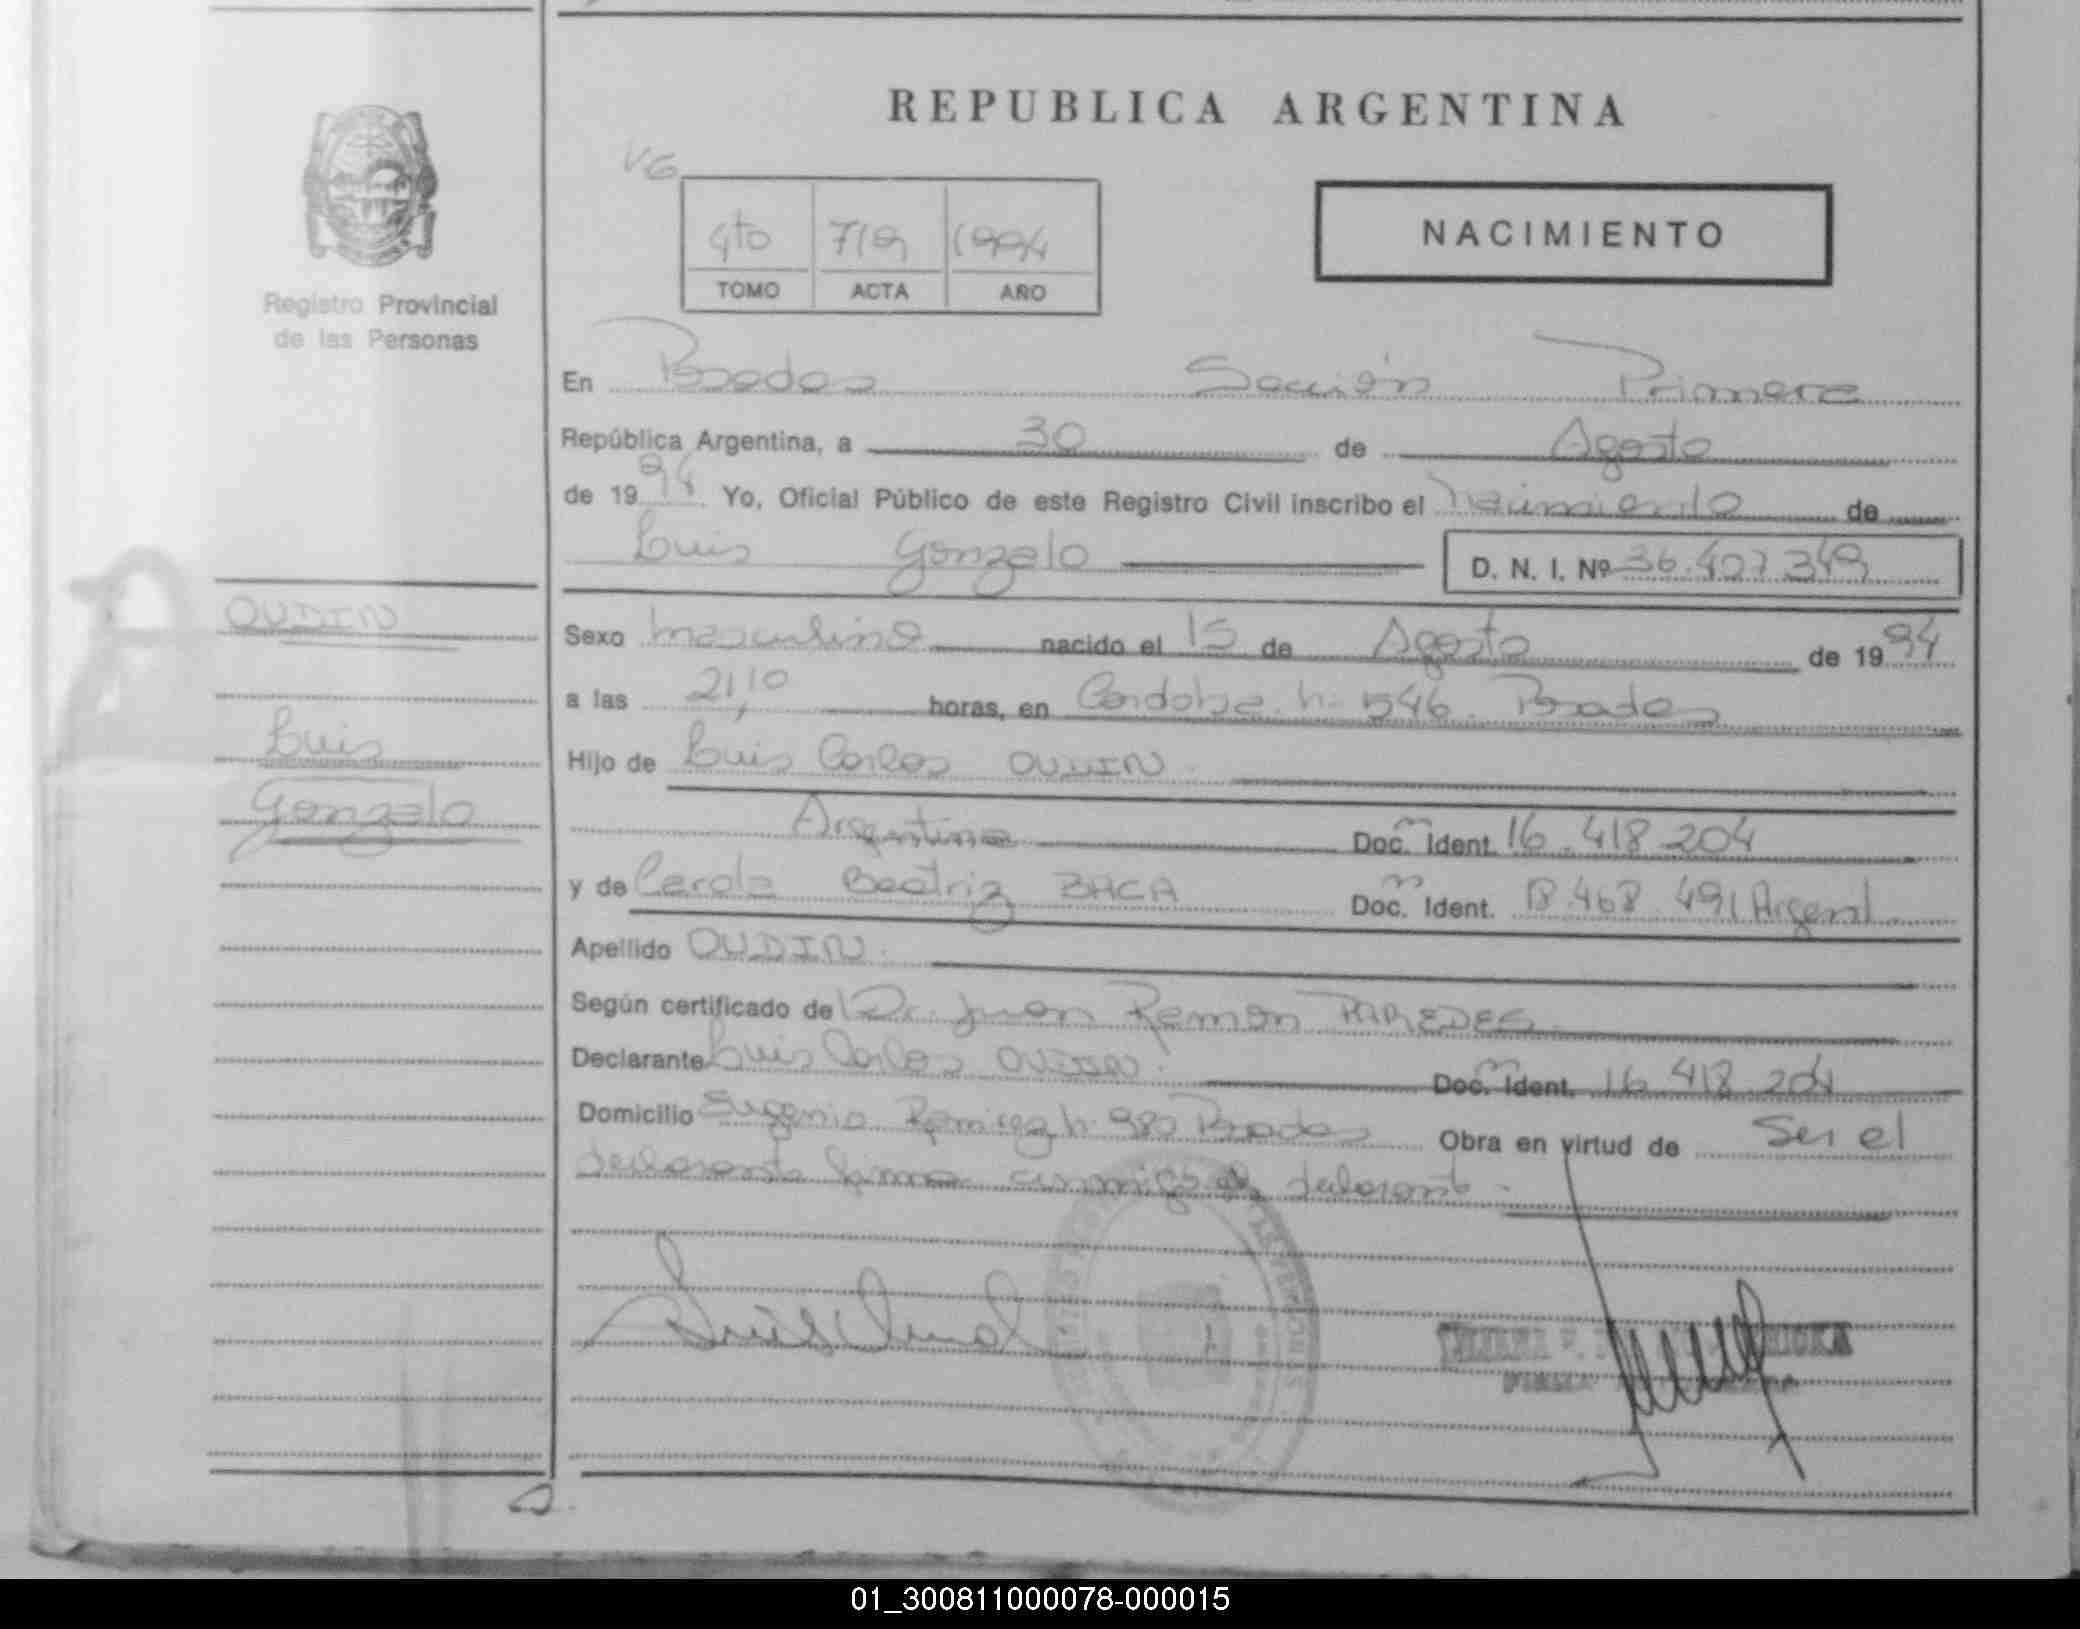 REPUBLICA ARGENTINA
VG
4to 719 1994
TOMO ACTA AÑO
NACIMIENTO
Registro Provincial
de las Personas
En Posadas Sección Primera
República Argentina, a 30 de Agosto
de 1994 Yo, Oficial Público de este Registro Civil inscribo el Nacimiento de
Luis Gonzalo D. N. I. Nº 36.407.349
OUDIN
Luis
Gonzalo
Sexo masculino nacido el 15 de Agosto de 1994
a las 21,10 horas, en Cordoba n. 546. Posadas
Hijo de Luis Carlos OUDIN
Argentina Doc. Ident. 16.418.204
y de Carola Beatriz BACA Doc. Ident. 18.468.491 Argent
Apellido OUDIN
Según certificado de Dr. Juan Ramon PAREDES
Declarante Luis Carlos OUDIN Doc. Ident. 16.418.204
Domicilio Eugenio Ramirez n. 980 Posadas Obra en virtud de Ser el
declarante firma conmigo el declarante
01_300811000078-000015